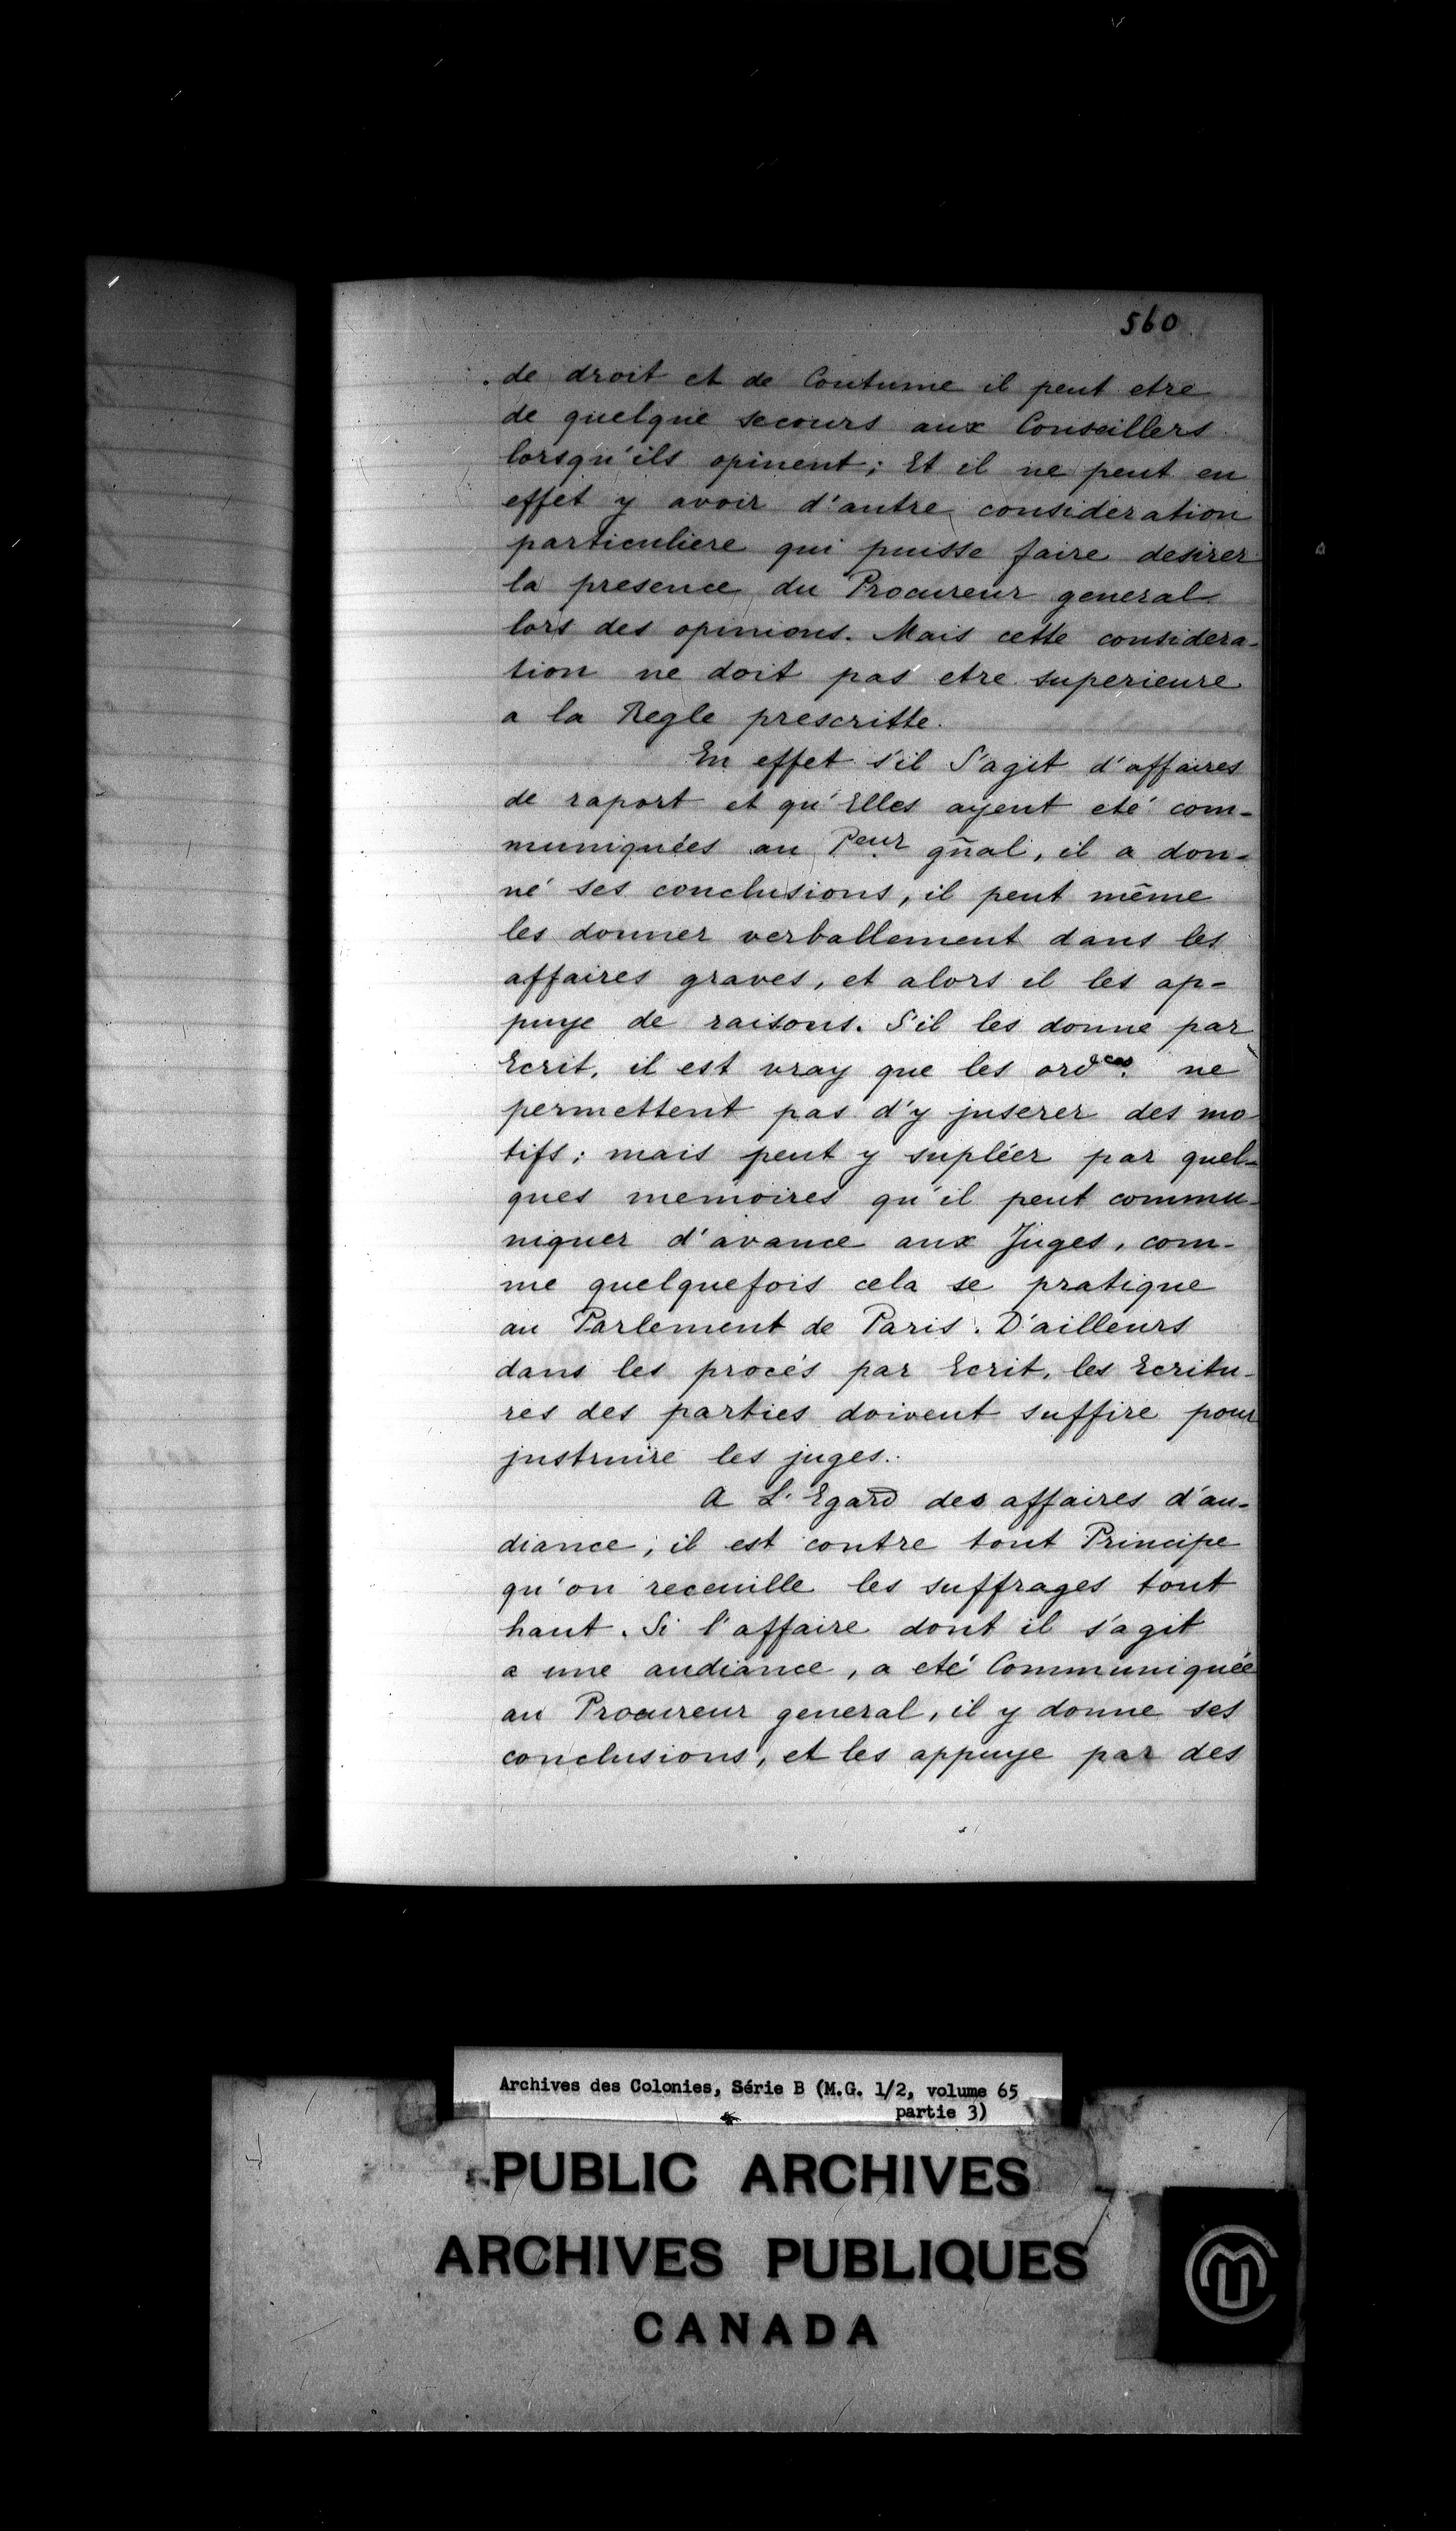 560
de droit et de Coutume il peut etre
de quelque secours aux Conseillers
lorsqu'ils opinent; Et il ne peut en
effet y avoir d'autre consideration
particuliere qui puisse faire desirer
la presence du Procureur general
lors des opinions. Mais cette considera-
tion ne doit pas etre superieure
a la Regle prescritte.
En effet s'il S'agit d'affaires
de raport et qu'Elles ayent eté com-
muniquées au P.eur gñal, il a don-
né ses conclusions, il peut même
les donner verballement dans les
affaires graves, et alors il les ap-
puye de raisons. S'il les donne par
Ecrit, il est vray que les ord.ces ne
permettent pas d'y jnserer des mo
tifs; mais peut y supléer par quel-
ques memoires qu'il peut commu-
niquer d'avance aux Juges, com-
me quelquefois cela se pratique
au Parlement de Paris. D'ailleurs
dans les procés par Ecrit, les Ecritu-
res des parties doivent suffire pour
jnstruire les juges.
A L'Egard des affaires d'au-
diance, il est contre tout Principe
qu'on receuille les suffrages tout
haut. Si l'affaire dont il s'agit
a une audiance, a eté Communiquée
au Procureur general, il y donne ses
conclusions, et les appuye par des
Archives des Colonies, Série B (M.G. 1/2, volume 65
partie 3)
PUBLIC ARCHIVES
ARCHIVES PUBLIQUES
CANADA